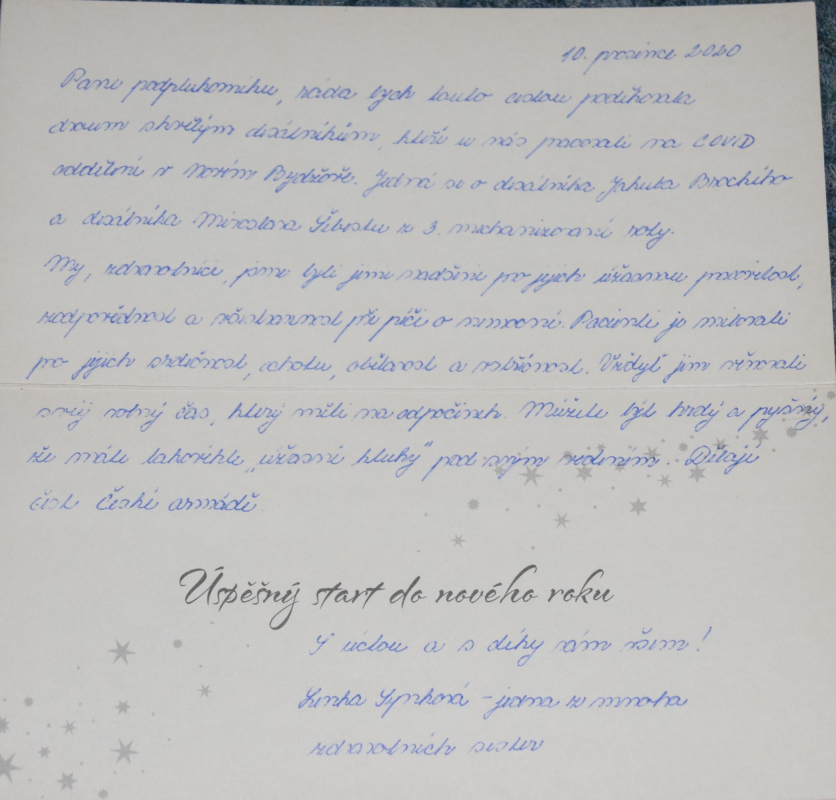 10. prosince 2020
Pane podplukovníku, ráda bych touto cestou poděkovala
dvoum skvělým desátníkům, kteří u nás pracovali na COVID
oddělení v Novém Bydžově. Jedná se o desátníka Jakuba
a desátníka Miroslava Šebestu z 3. mechanizované roty.
My, zdravotníci, jsme byli jimi nadšení pro jejich úžasnou pracovitost,
zodpovědnost a všestrannost při péči o nemocné. Pacienti je milovali
pro jejich srdečnost, ochotu, obětavost a vstřícnost. Vždyť jim věnovali
svůj volný čas, který měli na odpočinek. Můžete být hrdý a pyšný,
že máte takovéhle „úžasné kluky" pod svým vedením. Dělají
čest České armádě.
Úspěšný start do nového roku
S úctou a s díky vám všem!
Lenka - jedna ze mnoha
zdravotních sester